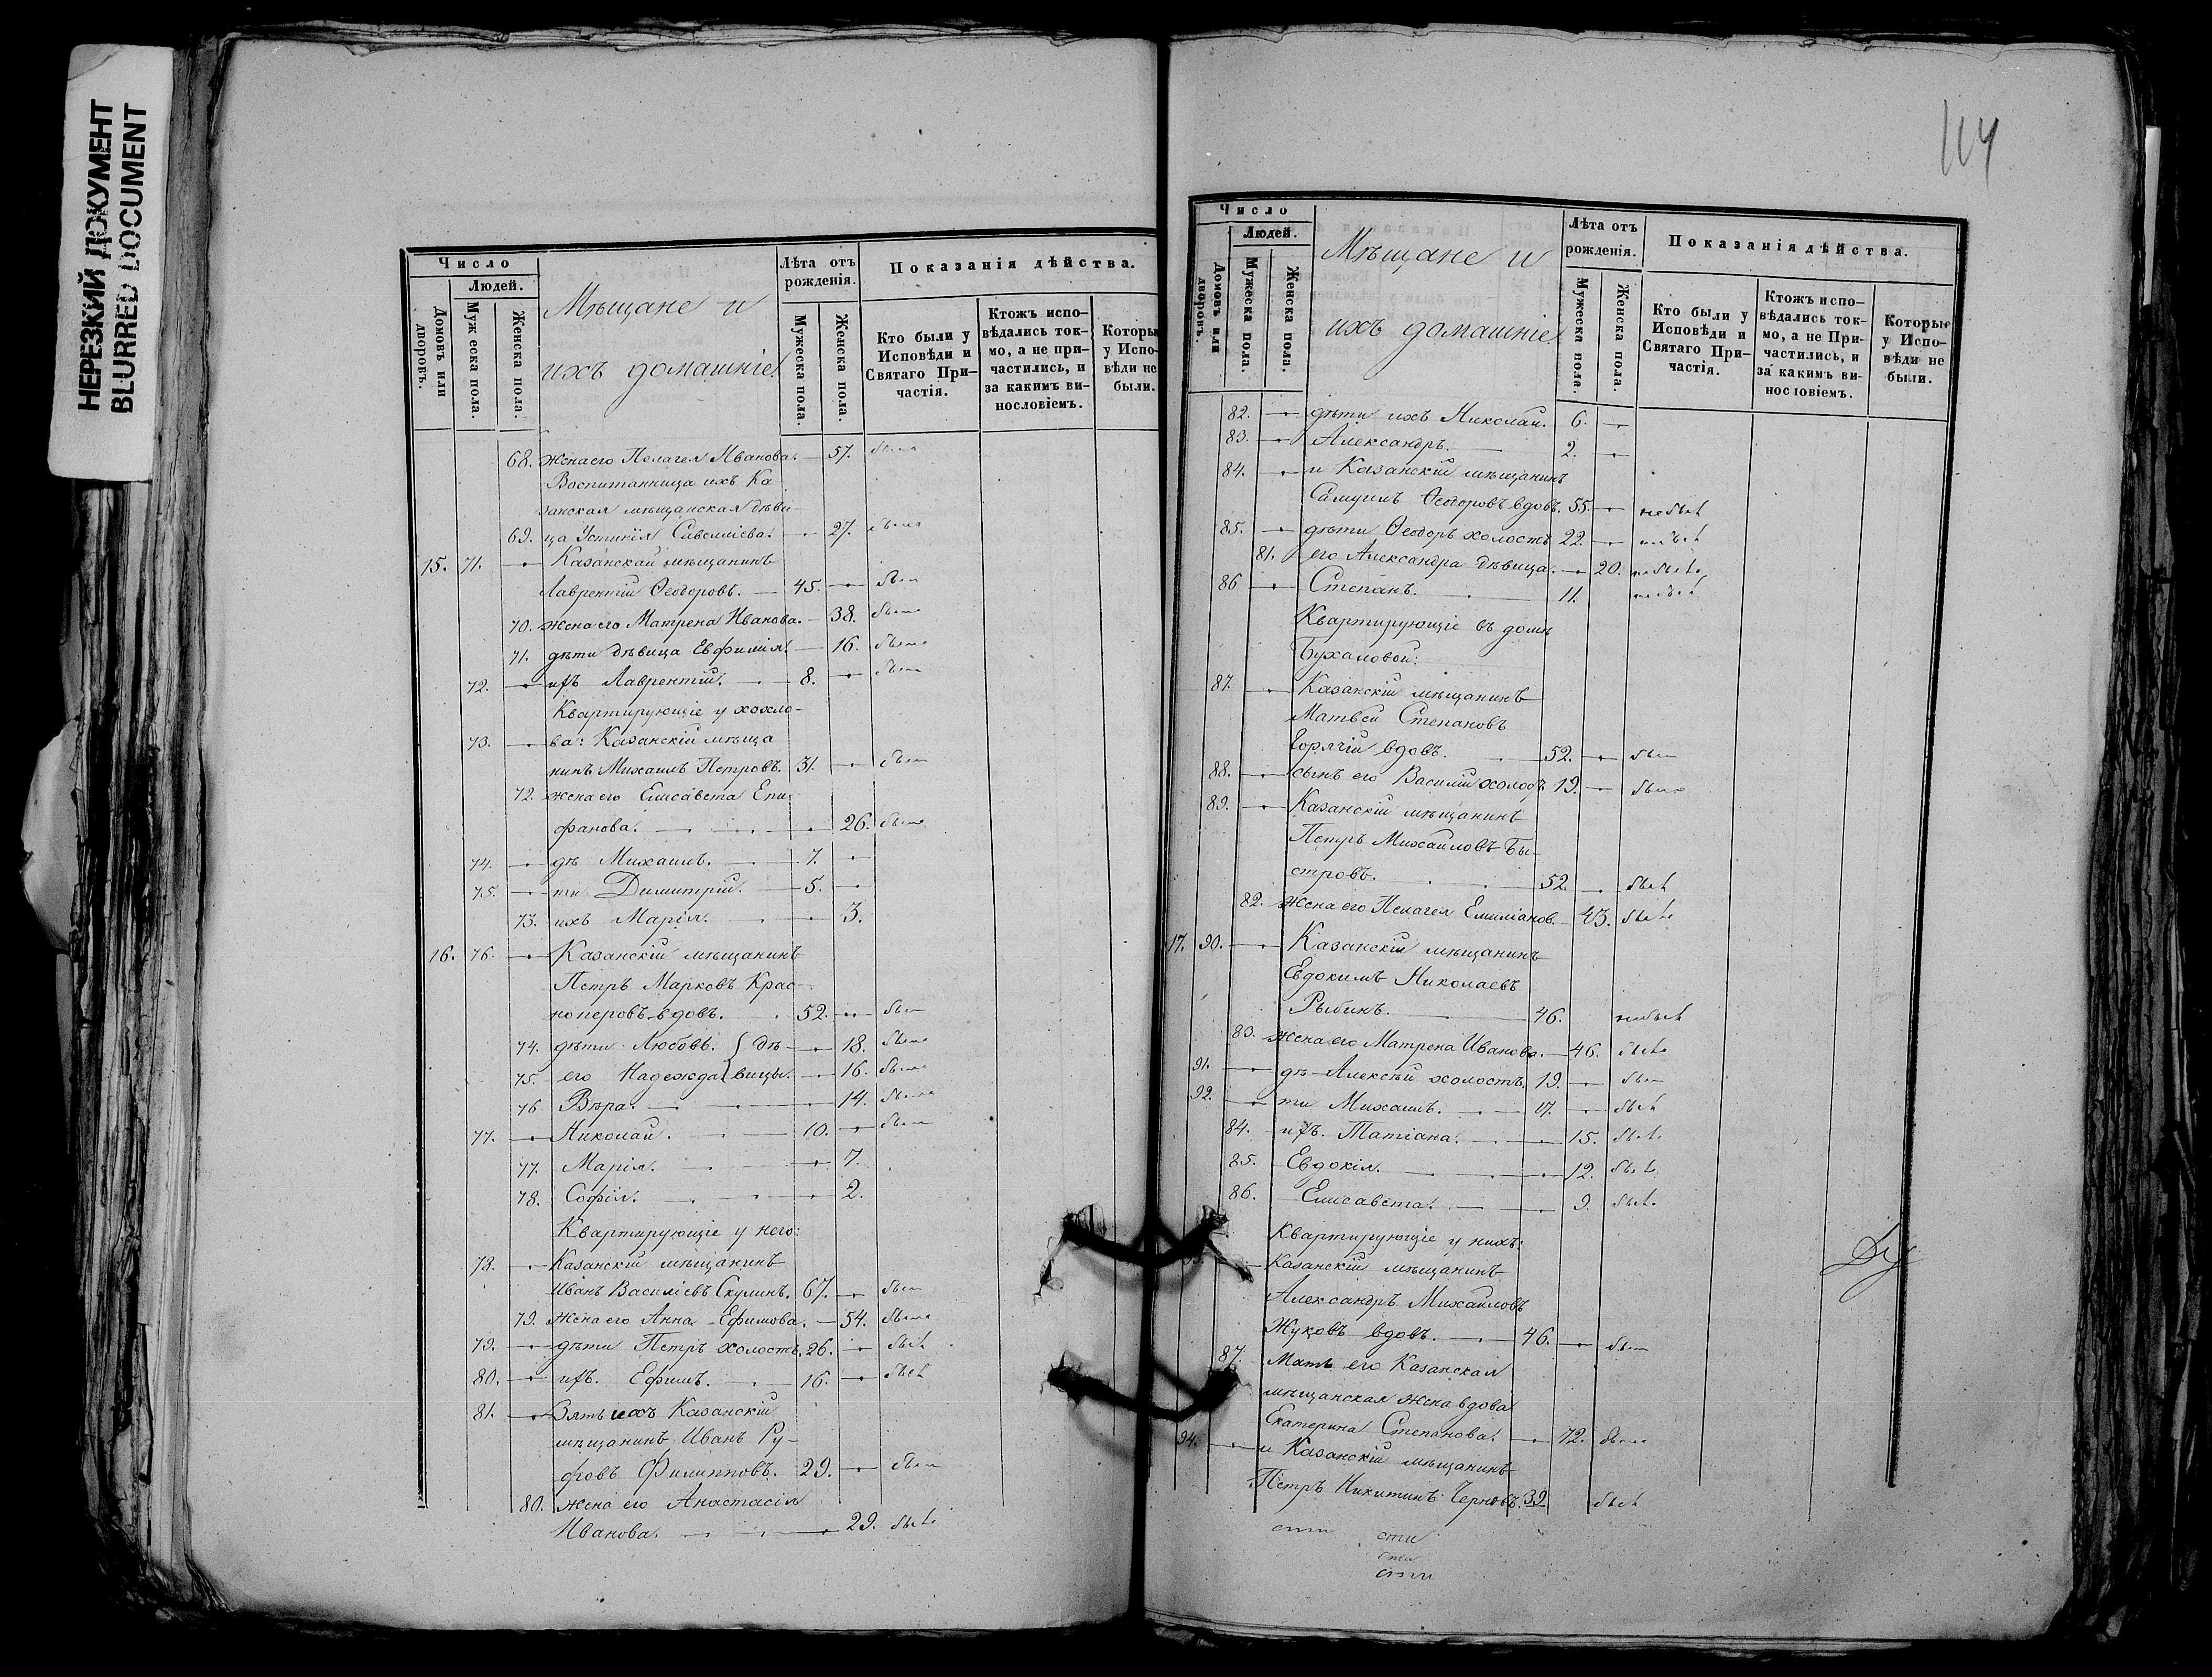 НЕРЕЗКИЙ ДОКУМЕНТ
BLURRED DOCUMENT
Число
Людей.
Домовъ или дворовъ.
Мужеска пола.
Женска пола.
Мѣщане и
ихъ домашніе
Лѣта отъ рожденія.
Мужеска пола.
Женска пола.
Показанія дѣйства.
Кто были у Исповѣди и Святаго При-частія.
Ктожъ испо-вѣдались ток-мо, а не при-частились, и за какимъ ви-нословіемъ.
Которы у Испо-вѣди не были.
68. жена его Пелагея Иванова. 57. была
Воспитанница ихъ Ка
занская мѣщанская дѣви-
69. ца Устинія Савелліева. 27. была
15. 71. Казанскай мѣщанинъ
Лаврентій Ѳеодоровъ. 45. был
70. жена его Матрена Иванова. 38. была
71. дѣти дѣвица Евфимія. 16. была
72. ихъ Лаврентій. 8. был
Квартирующіе у хохло-
73. ва: Казанскій мѣща
нинъ Михаилъ Петровъ. 31. был
72. жена его Елисавета Епи
фанова. 26. была
74. дѣ Михаилъ. 7.
75. ти Димитрій. 5.
73. ихъ Марія. 3.
16. 76. Казанскій мѣщанинъ
Петръ Марковъ Крас-
ноперовъ вдовъ. 52. был
74. дѣти Любовь. { дѣ 18. была
75. его Надежда { вицы. 16. была
76. Вѣра. 14. была
77. Николай. 10. был
77. Марія. 7.
78. Софія. 2.
Квартирующіе у него:
78. Казанскій мѣщанинъ
Иванъ Василіевъ Скулинъ. 67. был
79. жена его Анна Ефимова. 54. была
79. дѣти Петръ холостъ. 26. был
80. ихъ. Ефимъ. 16. был
81. Зять ихъ Казанскій
мѣщанинъ Иванъ Ру-
фовъ Филипповъ. 29. был
80. жена его Анастасія
Иванова. 29. была
114
Число
Людей.
Домовъ или дворовъ.
Мужеска пола.
Женска пола.
Мѣщане и
ихъ домашніе
Лѣта отъ рожденія.
Мужеска пола.
Женска пола.
Показанія дѣйства.
Кто были у Исповѣди и Святаго При-частія.
Ктожъ испо-вѣдались ток-мо, а не При-частились, и за какимъ ви-нословіемъ.
Которые у Испо-вѣди не были.
82. дѣти ихъ Николай. 6.
83. Александръ. 2.
84. и Казанскій мѣщанинъ
Самуилъ Ѳеодоровъ вдовъ. 55. небыл
85. дѣти Ѳеодоръ холостъ 22. небыл
81. его Александра дѣвица. 20. небыла
86 Степанъ. 11. небыл
Квартирующіе въ домѣ
Бухаловой:
87. Казанскій мѣщанинъ
Матвей Степановъ
Горячій вдовъ. 52. был
88. сынъ его Василій холостъ 19. был
89. Казанскій мѣщанинъ
Петръ Михайловъ Бы-
стровъ. 52. был
82. жена его Пелагея Емиліанов. 43. была
17. 90. Казанскій мѣщанинъ
Евдокимъ Николаевъ
Рыбинъ. 46. небыл
83. жена его Матрена Иванова. 46. была
91. дѣ Алексѣй холостъ. 19. был
92. ти Михаилъ. 17. был
84. ихъ. Татіана. 15. была
85. Евдокія. 12. была
86. Елисавета. 9. была
Квартирующіе у нихъ:
93. Казанскій мѣщанинъ
Александръ Михайловъ
Жуковъ вдовъ. 46. был
87. Мать его Казанская
мѣщанская жена вдова
Екатерина Степанова. 72. была
94. и Казанскій мѣщанинъ
Петръ Никитинъ Черновъ. 39. был
сти